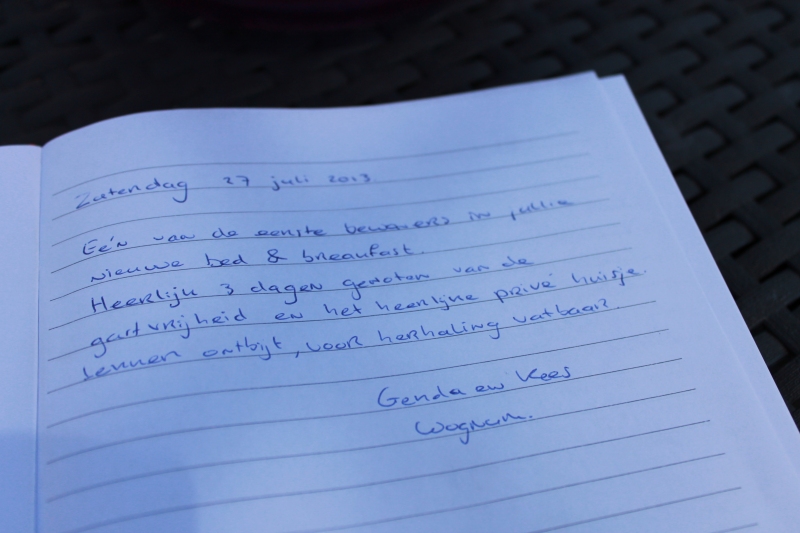 Zaterdag 27 juli 2013
Eén van de eerste bewoners in jullie
nieuwe bed & breakfast.
Heerlijk 3 dagen genoten van de
gastvrijheid en het heerlijke privé huisje.
lekker ontbijt, voor herhaling vatbaar.
Gerda en Kees
Wognum.